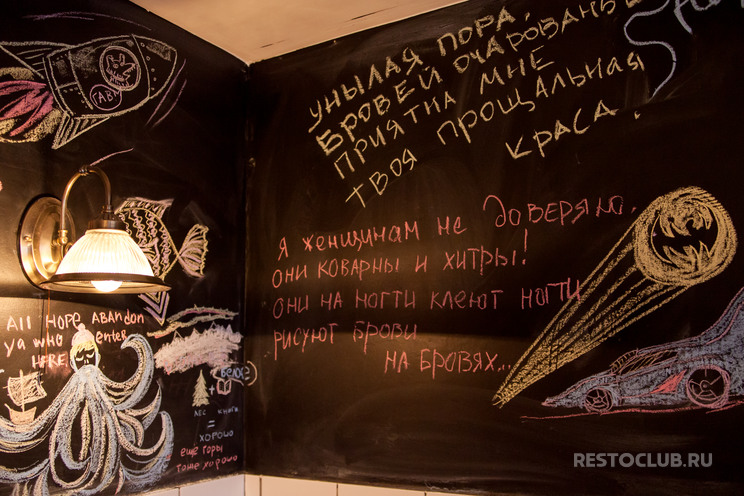 (АВ)
All Hope Abandon
ya who enter
HERE
(БЕЛОЕ)
+
ЛЕС КНИГИ
=
ХОРОШО
ЕЩЕ ГОРЫ
ТОЖЕ ХОРОШО
УНЫЛАЯ ПОРА.
БРОВЕЙ ОЧАРОВАНЬЕ
ПРИЯТНА МНЕ
ТВОЯ ПРОЩАЛЬНАЯ
КРАСА.
Я ЖЕНЩИНАМ НЕ ДОВЕРЯЮ.
ОНИ КОВАРНЫ И ХИТРЫ!
ОНИ НА НОГТИ КЛЕЮТ НОГТИ
РИСУЮТ БРОВИ
НА БРОВЯХ...
RESTOCLUB.RU